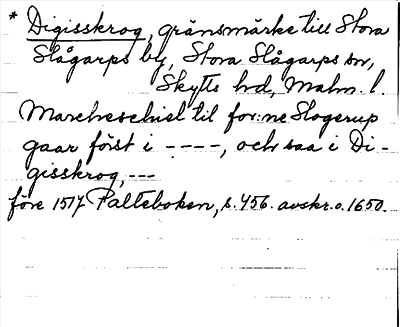 * Digisskrog, gränsmärke till Stora
Slågarps by, Stora Slågarps sn,
Skytts hd, Malm. l.
Marcheschiel til for:ne Slogerup
gaar först i ----, och saa i Di-
gisskrog, ---
före 1517 Palteboken, s. 456. avskr. o. 1650.